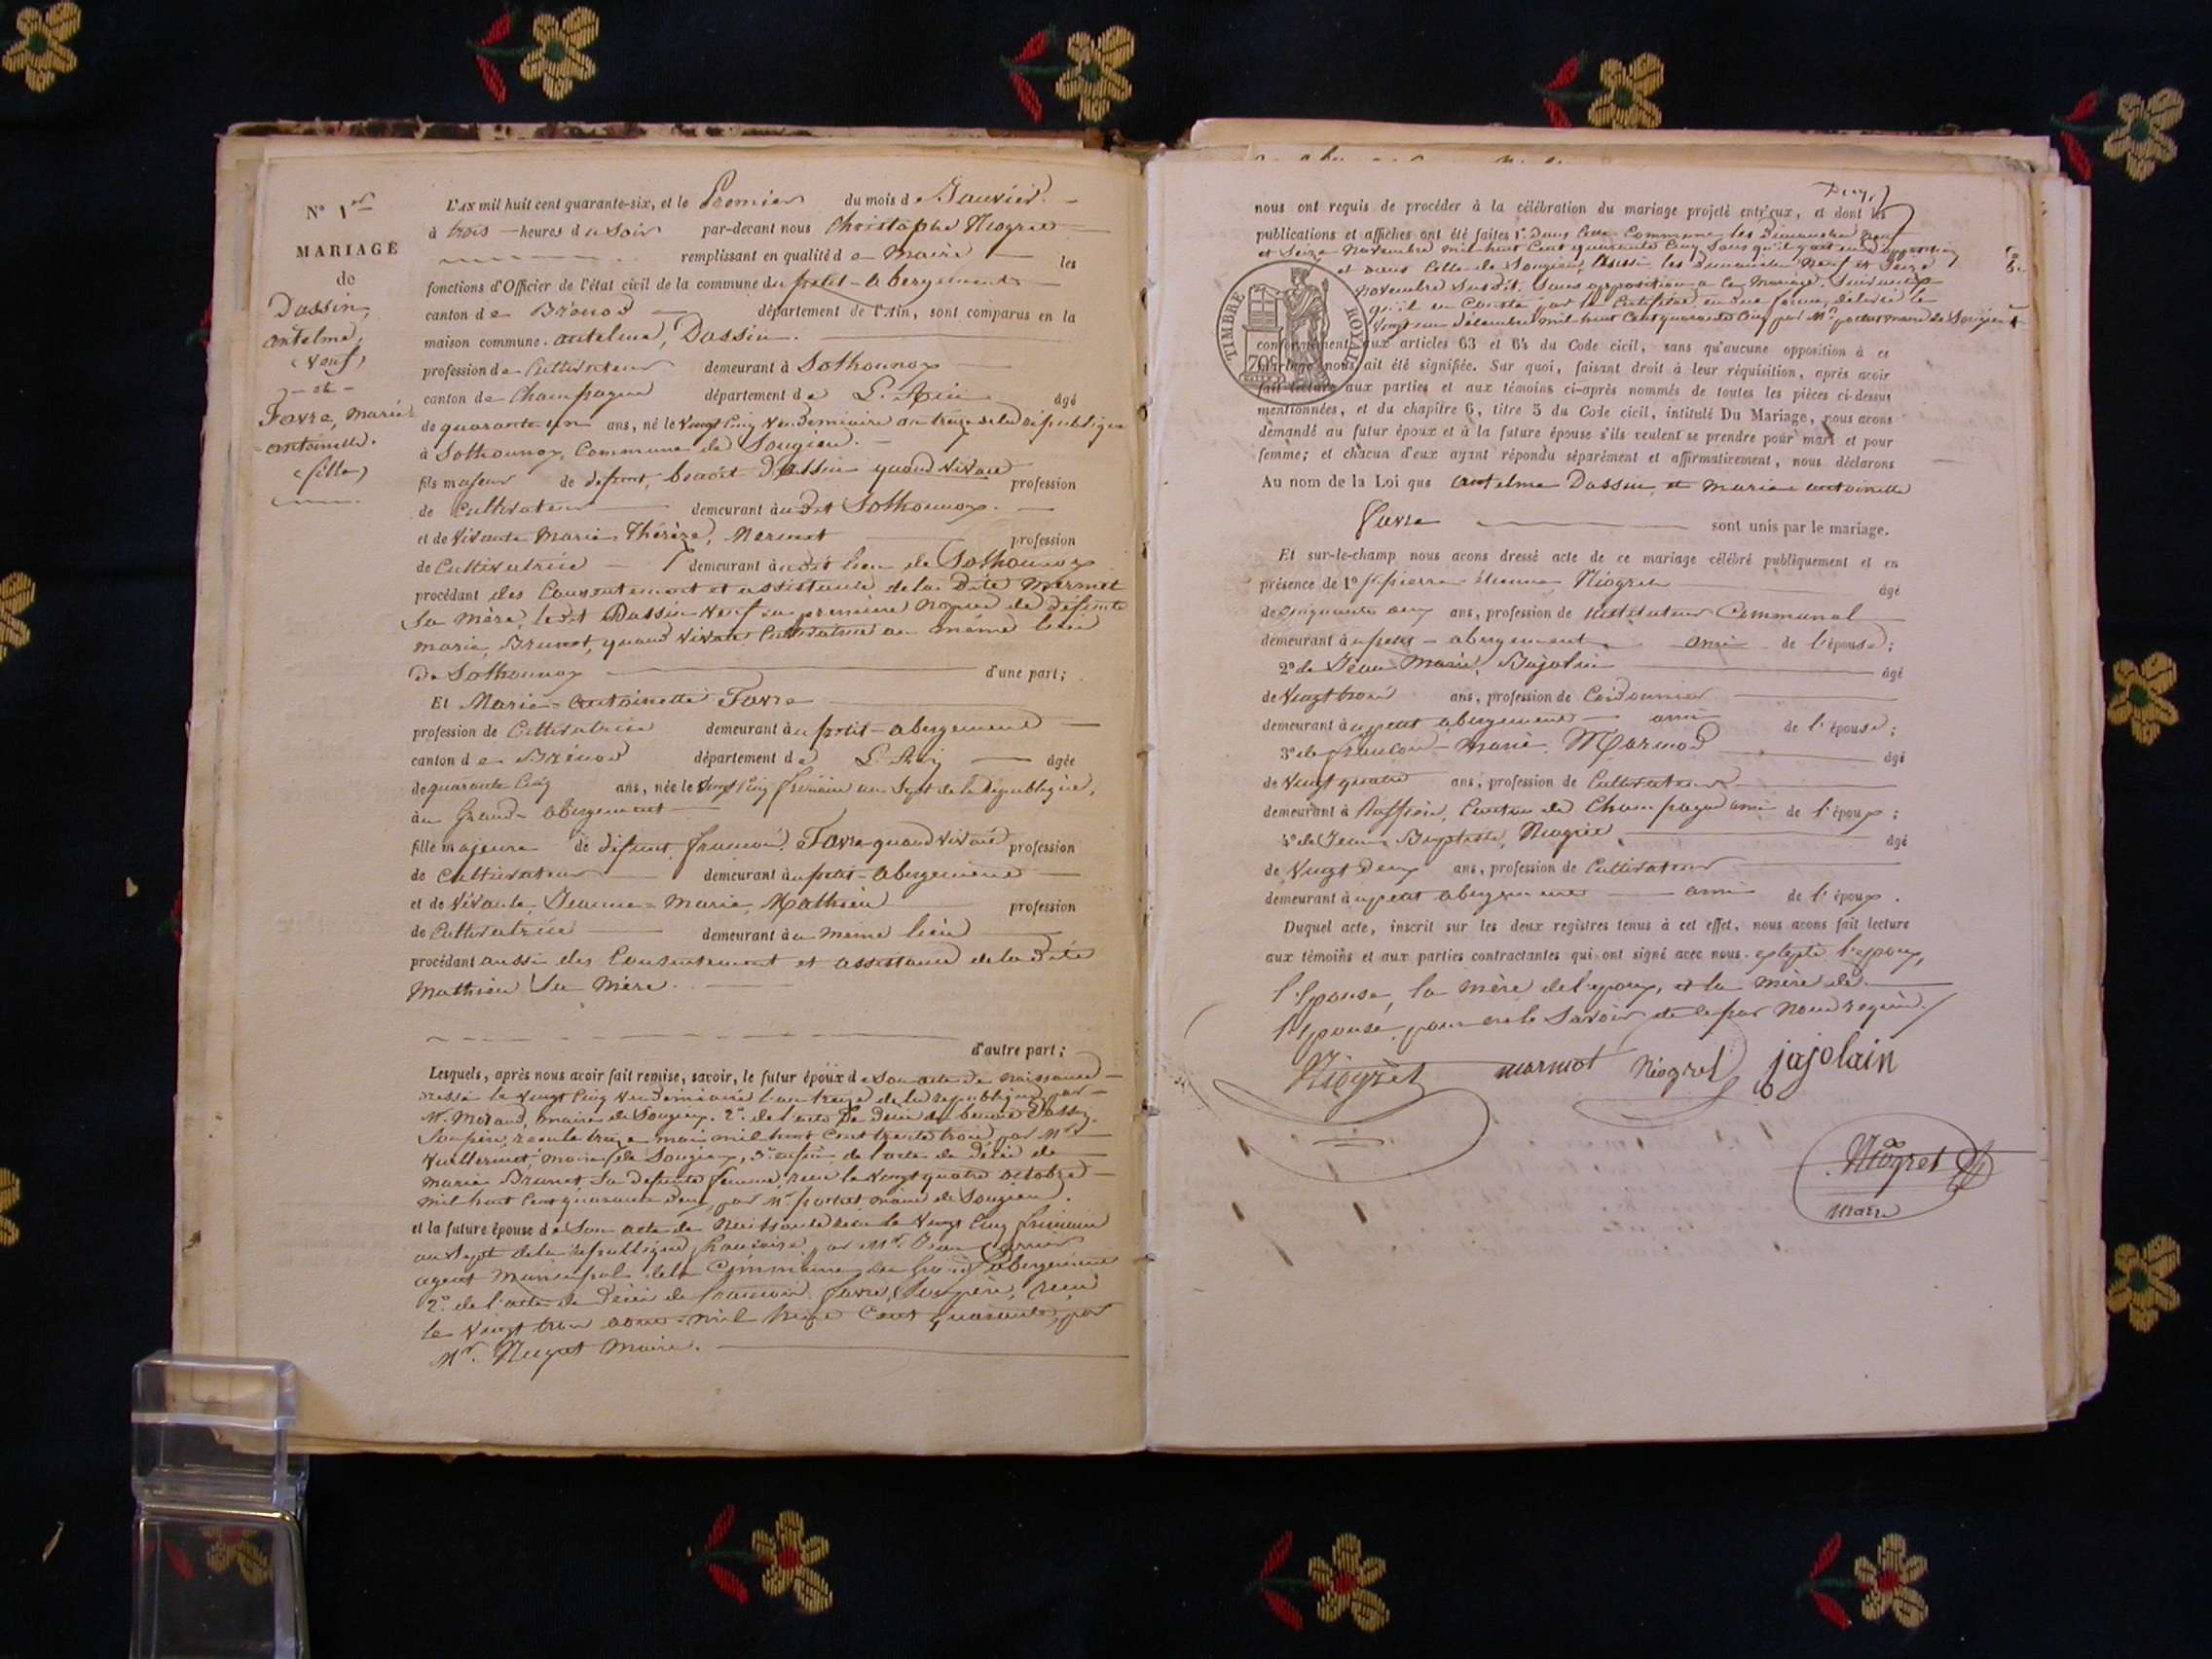 N° 1er
MARIAGE
de
Dassin,
antelme,
(veuf)
- et -
Favre, marie
antoinette.
(fille)
L'AN mil huit cent quarante-six, et le Premier du mois de Janvier.
à trois heures du Soir par-devant nous Christophe Niogret
remplissant en qualité de Maire les
fonctions d'Officier de l'état civil de la commune du petit-abergement
canton de Brénod département de l'Ain, sont comparus en la
maison commune. antelme, Dassin.
profession de Cultivateur demeurant à Sothonnox
canton de Champagne département de L'Ain âgé
de quarante un ans, né le vingt cinq vendemiaire an treize de la république
à Sothonnox, Commune de Songieu.
fils majeur de défunt, benoit Dassin quand vivait profession
de Cultivateur demeurant audit Sothonnox.
et de vivante Marie Thérèze, Mermet profession
de Cultivatrice demeurant audit lieu de Sothonnox
procédant des Consentement et assistance de la dite Mermet
Sa mère, ledit Dassin veuf en première noces de défunte
marie, Brunet, quand vivait Cultivatrice au même lieu
de Sothonnox d'une part;
Et Marie-antoinette Favre
profession de Cultivatrice demeurant au petit-abergement
canton de Brénod département de L'Ain âgée
de quarante cinq ans, née le vingt cinq frimaire an Sept de la république,
au Grand-abergement
fille majeure de défunt françois Favre quand vivait profession
de Cultivateur demeurant au petit-abergement
et de vivante Jeanne-Marie, Mathieu profession
de Cultivatrice demeurant au même lieu
procédant aussi des Consentement et assistance de la dite
Mathieu Sa Mère.
d'autre part;
Lesquels, après nous avoir fait remise, savoir, le futur époux de Son acte de naissance
dressé le vingt cinq vendemiaire l'an treize de la république par
Mr. Morand, maire de Songieu. 2° de l'acte de décès de benoit Dassin
Son père, reçu le treize mai mil huit Cent trente trois par Mr
Vuillermet, maire de Songieu, 3° enfin de l'acte de décès de
marie Brunet, Sa defunte femme, reçu le vingt quatre octobre
mil huit Cent quarante deux, par Mr maire de Songieu.
et la future épouse de Son acte de naissance reçu le vingt cinq frimaire
an Sept de la république française par Mr. Jean
agent municipal de la Commune du Grand abergement
2° de l'acte de décès de françois Favre, Son père, reçu
le vingt trois mil Cent quarante, par
Mr. Maire.
nous ont requis de procéder à la célébration du mariage projeté entr'eux, et dont les
publications et affiches ont été faites 1° Dans Cette Commune les Dimanches neuf
et Seize Novembre mil huit Cent quarante Cinq Sans qu'il y ait eu d'opposition
et dans Celle de Songieu, aussi les Dimanches neuf et Seize
novembre Susdit, Sans opposition a ce Mariage,
qu'il en Conste par le Certificat en due forme, délivré le
vingt un Décembre mil huit Cent quarante Cinq par Mr maire de Songieu
TIMBRE ROYAL
70c
conformément aux articles 63 et 64 du Code civil, sans qu'aucune opposition à ce
mariage nous ait été signifiée. Sur quoi, faisant droit à leur réquisition, après avoir
fait lecture aux parties et aux témoins ci-après nommés de toutes les pièces ci-dessus
mentionnées, et du chapitre 6, titre 5 du Code civil, intitulé Du Mariage, nous avons
demandé au futur époux et à la future épouse s'ils veulent se prendre pour mari et pour
femme; et chacun d'eux ayant répondu séparément et affirmativement, nous déclarons
Au nom de la Loi que antelme Dassin et Marie antoinette
Favre sont unis par le mariage.
Et sur-le-champ nous avons dressé acte de ce mariage célébré publiquement et en
présence de 1° pierre Etienne Niogret âgé
de cinquante ans, profession de instituteur Communal
demeurant au petit-abergement ami de l'épouse;
2° de Jean Marie, Bajolin âgé
de vingt trois ans, profession de Cordonnier
demeurant au petit abergement ami de l'épouse;
3° de françois-Marie Marmod âgé
de vingt quatre ans, profession de Cultivateur
demeurant à Canton de Champagne ami de l'époux;
4° de Jean Baptiste, Niogret âgé
de vingt deux ans, profession de Cultivateur
demeurant au petit abergement ami de l'époux.
Duquel acte, inscrit sur les deux registres tenus à cet effet, nous avons fait lecture
aux témoins et aux parties contractantes qui ont signé avec nous. excepté l'epoux,
l'Epouse, la mère de l'epoux, et la mère de
l'Epouse, pour ne le Savoir de ce par Nous requis.
Niogret marmot Niogret jajolain
Niogret
maire